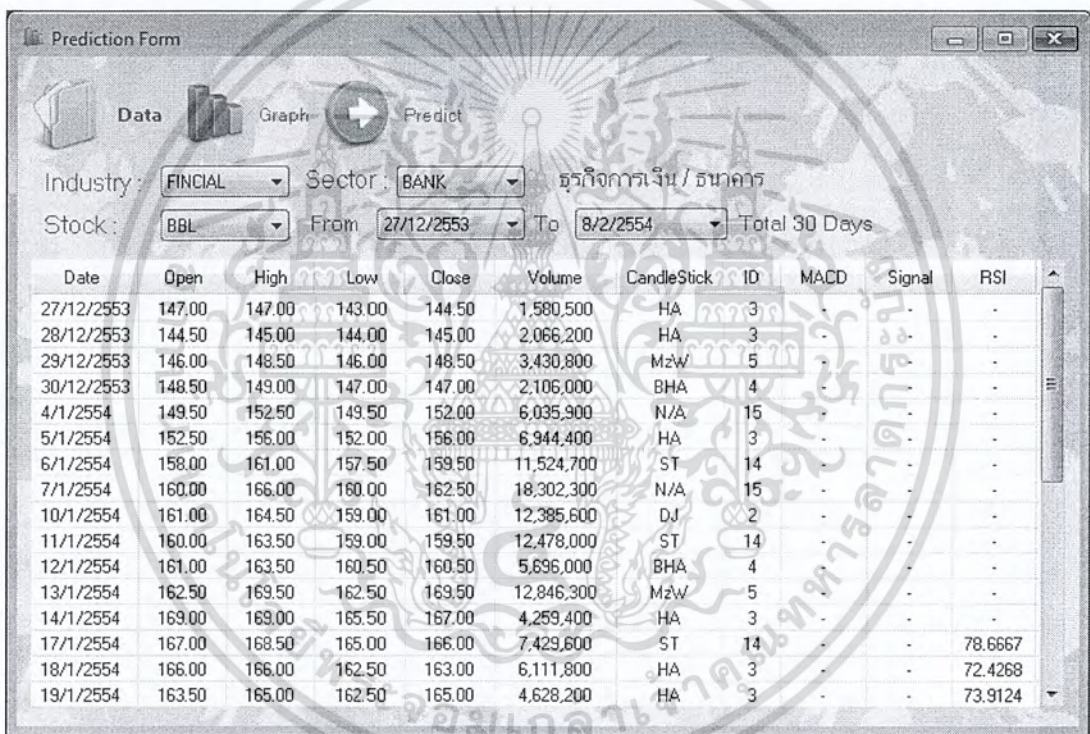 Prediction Form
Data Graph Predict
Industry : FINCIAL Sector : BANK ธุรกิจการเงิน / ธนาคาร
Stock : BBL From 27/12/2553 To 8/2/2554 Total 30 Days
Date Open High Low Close Volume CandleStick ID MACD Signal RSI
27/12/2553 147.00 147.00 143.00 144.50 1,580,500 HA 3 - - -
28/12/2553 144.50 145.00 144.00 145.00 2,066,200 HA 3 - - -
29/12/2553 146.00 148.50 146.00 148.50 3,430,800 MzW 5 - - -
30/12/2553 148.50 149.00 147.00 147.00 2,106,000 BHA 4 - - -
4/1/2554 149.50 152.50 149.50 152.00 6,035,900 N/A 15 - - -
5/1/2554 152.50 156.00 152.00 156.00 6,944,400 HA 3 - - -
6/1/2554 158.00 161.00 157.50 159.50 11,524,700 ST 14 - - -
7/1/2554 160.00 166.00 160.00 162.50 18,302,300 N/A 15 - - -
10/1/2554 161.00 164.50 159.00 161.00 12,385,600 DJ 2 - - -
11/1/2554 160.00 163.50 159.00 159.50 12,478,000 ST 14 - - -
12/1/2554 161.00 163.50 160.50 160.50 5,696,000 BHA 4 - - -
13/1/2554 162.50 169.50 162.50 169.50 12,846,300 MzW 5 - - -
14/1/2554 169.00 169.00 165.50 167.00 4,259,400 HA 3 - - -
17/1/2554 167.00 168.50 165.00 166.00 7,429,600 ST 14 - - 78.6667
18/1/2554 166.00 166.00 162.50 163.00 6,111,800 HA 3 - - 72.4268
19/1/2554 163.50 165.00 162.50 165.00 4,628,200 HA 3 - - 73.9124